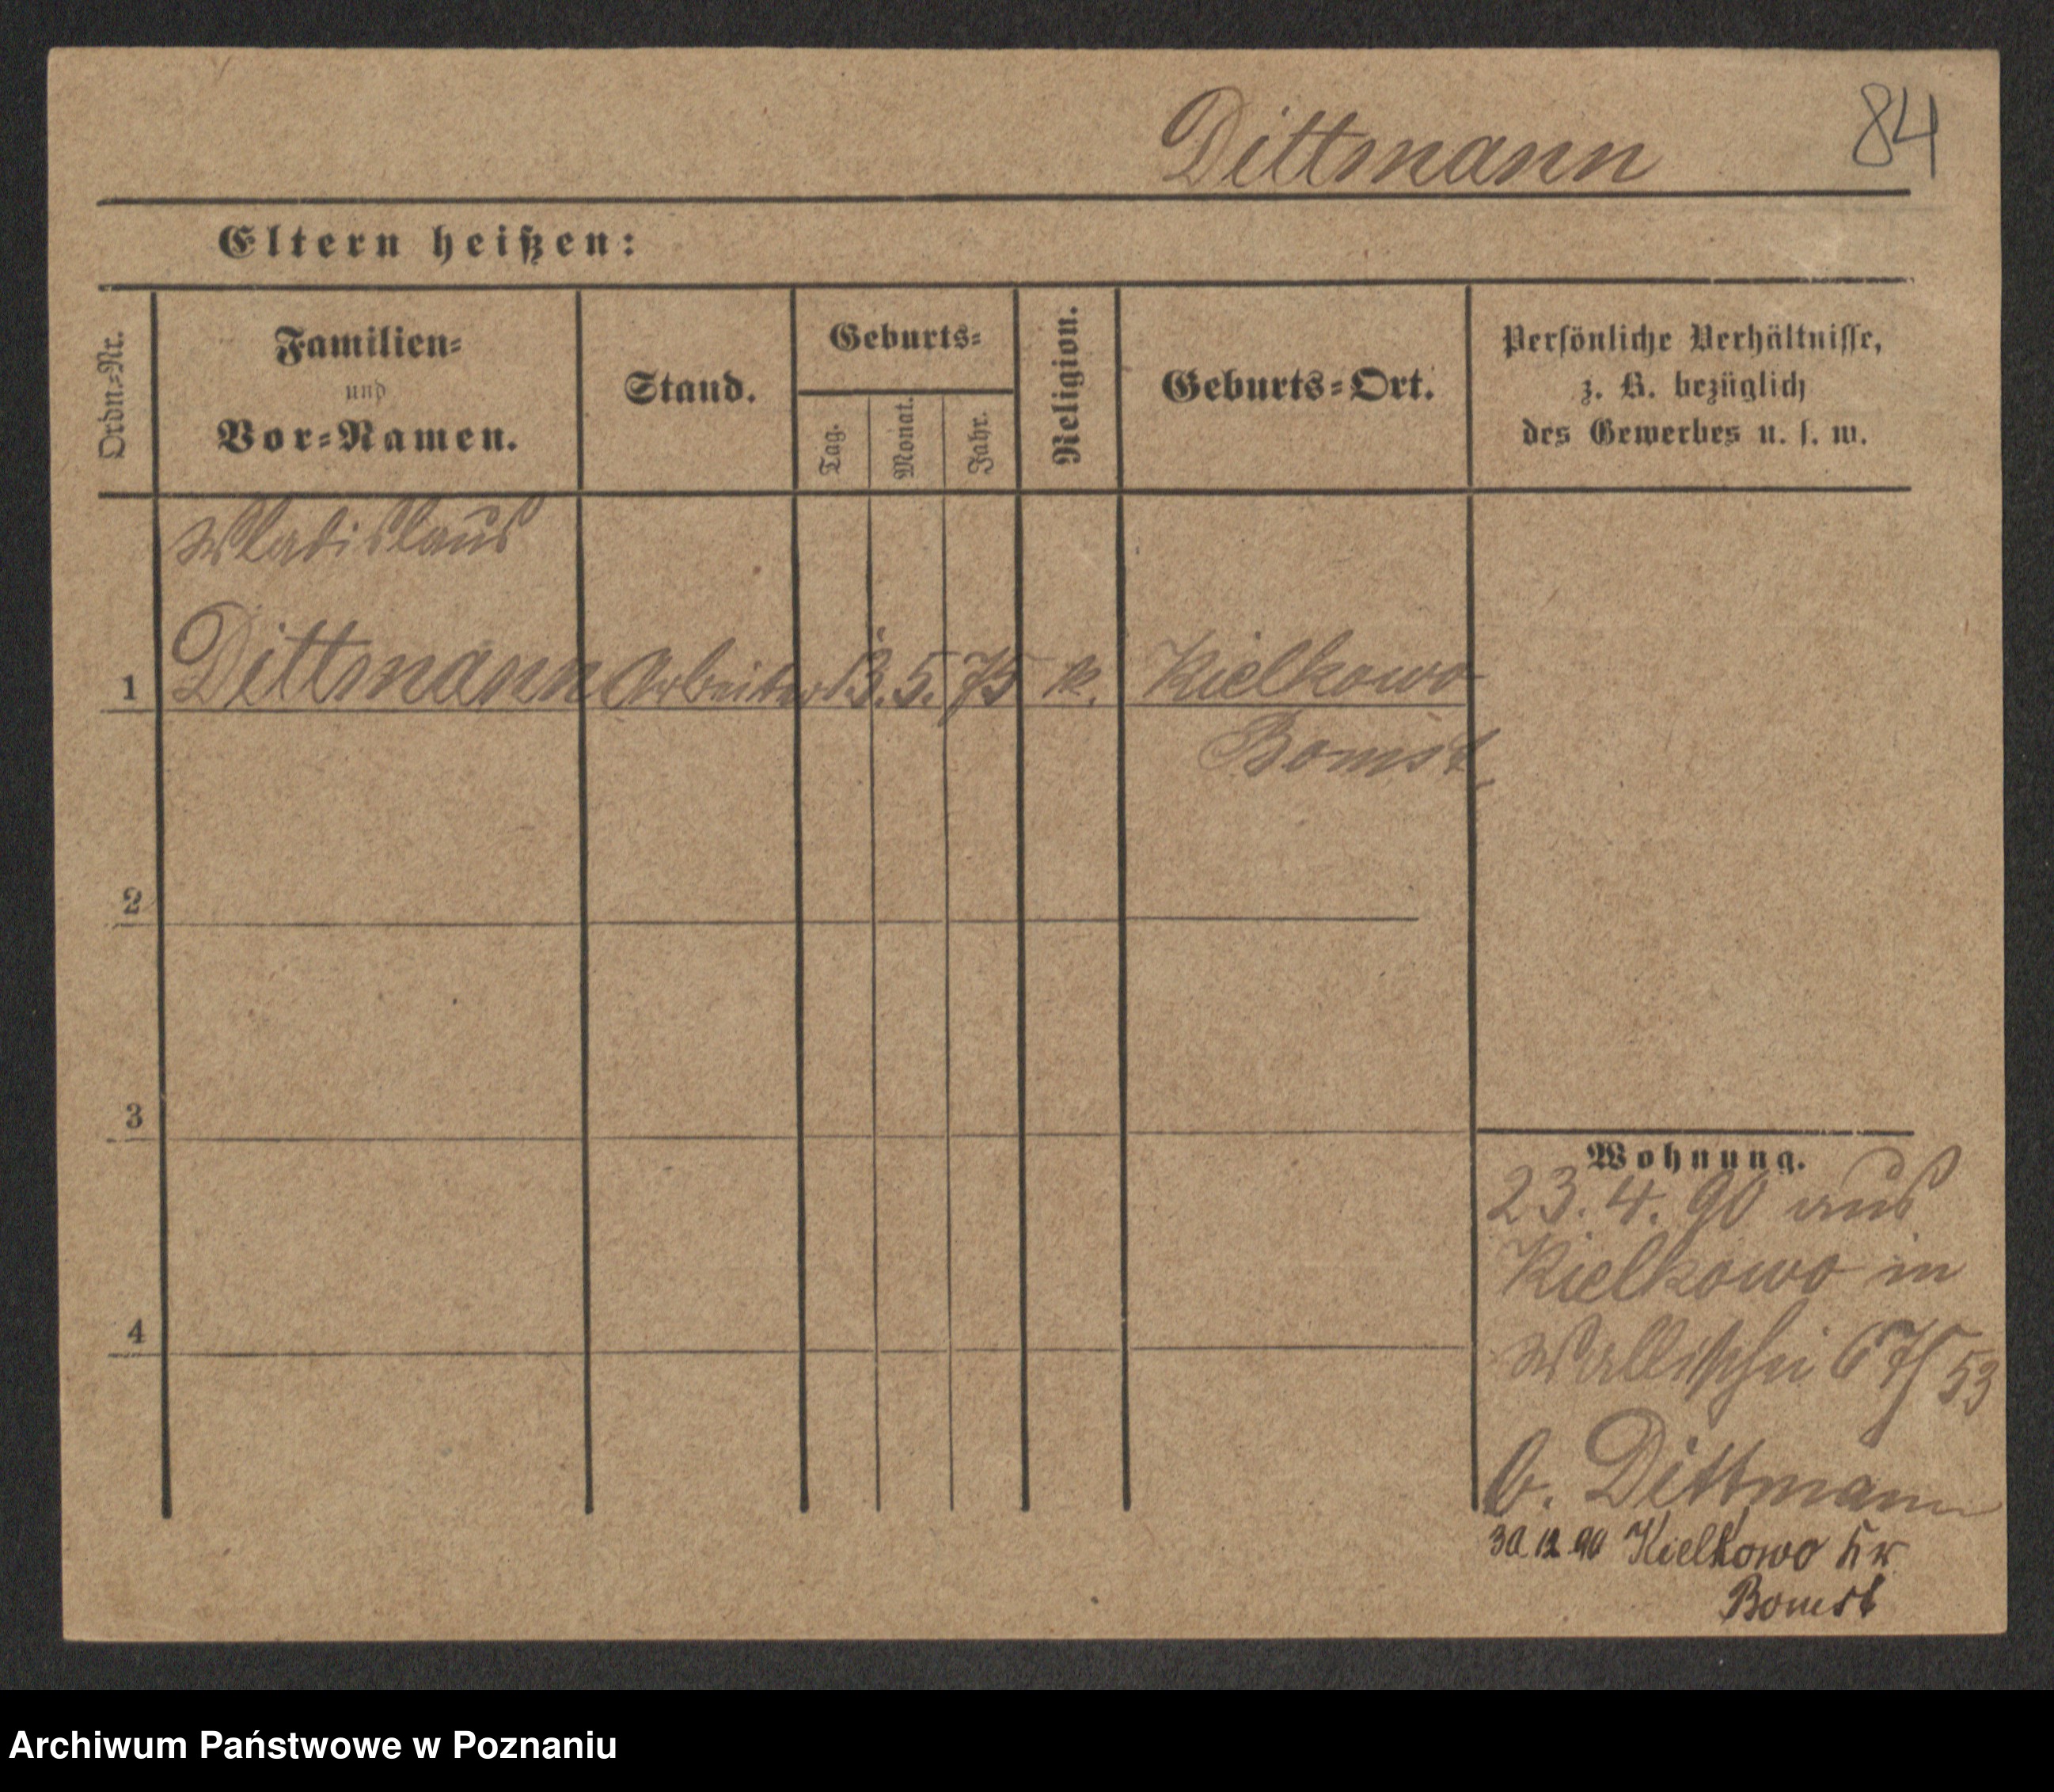 Dittmann 84
Eltern heißen:
Ordn.=Nr.
Familien=
und
Vor=Namen.
Stand.
Geburts=
Tag.
Monat.
Jahr.
Religion.
Geburts=Ort.
Persönliche Verhältnisse,
z. B. bezüglich
des Gewerbes u. s. w.
Wladislaus
1 Dittmann Arbeiter 13. 5. 75 k. Kielkowo
Bomst
2
3
4
Wohnung.
23. 4. 90 aus
Kielkowo in
Wallischei 67/53
b. Dittmann
30 12 90 Kielkowo Kr
Bomst
Archiwum Państwowe w Poznaniu